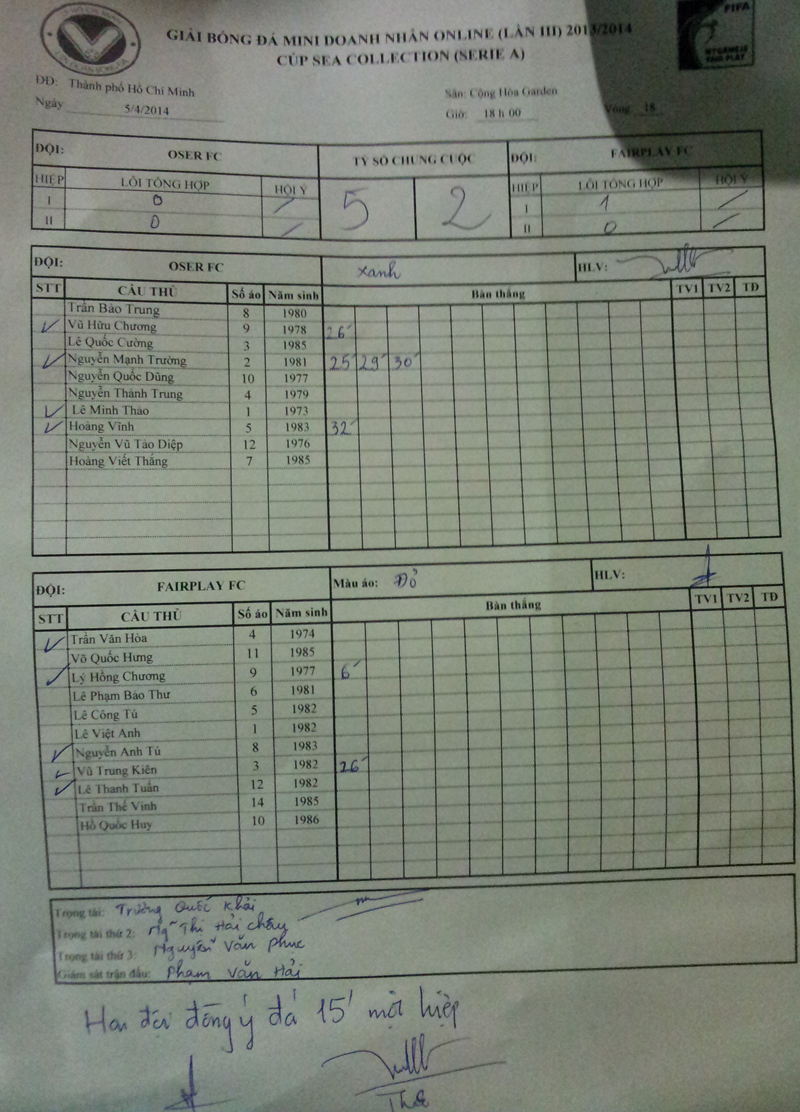 GIẢI BÓNG ĐÁ MINI DOANH NHÂN ONLINE (LẦN III) 2013/2014
CÚP SEA COLLECTION (SERIE A)
FIFA
FAIR PLAY
ĐĐ: Thành phố Hồ Chí Minh Sân: Cộng Hòa Garden
Ngày 5/4/2014 Giờ: 18 h 00 Vòng 18
ĐỘI: OSER FC TỶ SỐ CHUNG CUỘC ĐỘI: FAIRPLAY FC
HIỆP LỖI TỔNG HỢP HỘI Ý 5 2 HIỆP LỖI TỔNG HỢP HỘI Ý
I 0 / I 1 /
II 0 / II 0 /
ĐỘI: OSER FC xanh HLV:
STT CẦU THỦ Số áo Năm sinh Bàn thắng TV1 TV2 TĐ
Trần Bảo Trung 8 1980
Vũ Hữu Chương 9 1978 26'
Lê Quốc Cường 3 1985
Nguyễn Mạnh Trường 2 1981 25' 29' 30'
Nguyễn Quốc Dũng 10 1977
Nguyễn Thành Trung 4 1979
Lê Minh Thảo 1 1973
Hoàng Vĩnh 5 1983 32'
Nguyễn Vũ Tảo Diệp 12 1976
Hoàng Viết Thắng 7 1985
ĐỘI: FAIRPLAY FC Màu áo: Đỏ HLV:
STT CẦU THỦ Số áo Năm sinh Bàn thắng TV1 TV2 TĐ
Trần Văn Hòa 4 1974
Võ Quốc Hưng 11 1985
Lý Hồng Chương 9 1977 6'
Lê Phạm Bảo Thư 6 1981
Lê Công Tú 5 1982
Lê Việt Anh 1 1982
Nguyễn Anh Tú 8 1983
Vũ Trung Kiên 3 1982 26'
Lê Thanh Tuấn 12 1982
Trần Thế Vinh 14 1985
Hồ Quốc Huy 10 1986
Trọng tài: Trương Quốc Khải
Trọng tài thứ 2: Ng~ Thị Hải Châu
Trọng tài thứ 3: Nguyễn Văn Phúc
Giám sát trận đấu: Phạm Văn Hải
Hai đội đồng ý đá 15' một hiệp